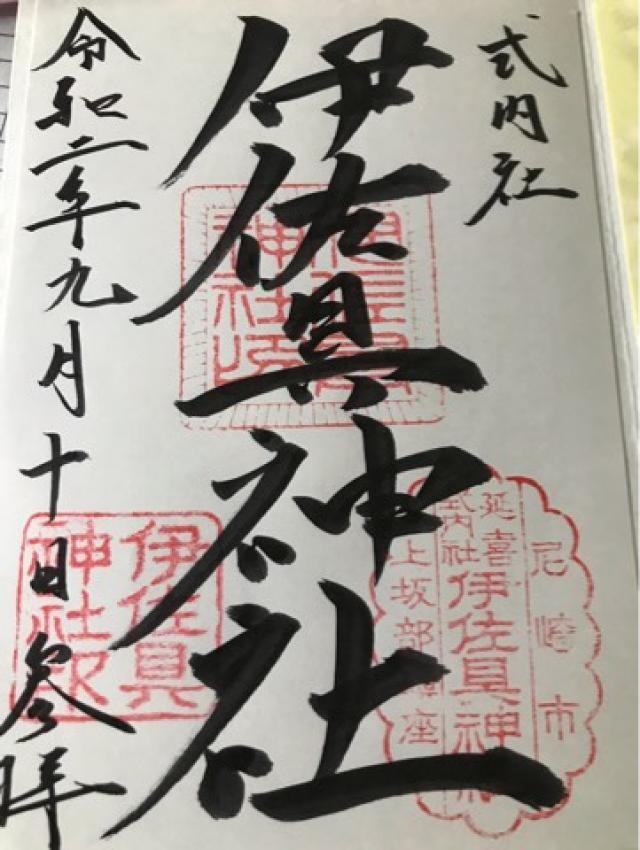 式内社
伊佐具神社
令和二年九月十日参拝
尼崎市
延喜式内社
伊佐具神社
上坂部鎮座
伊佐具
神社印